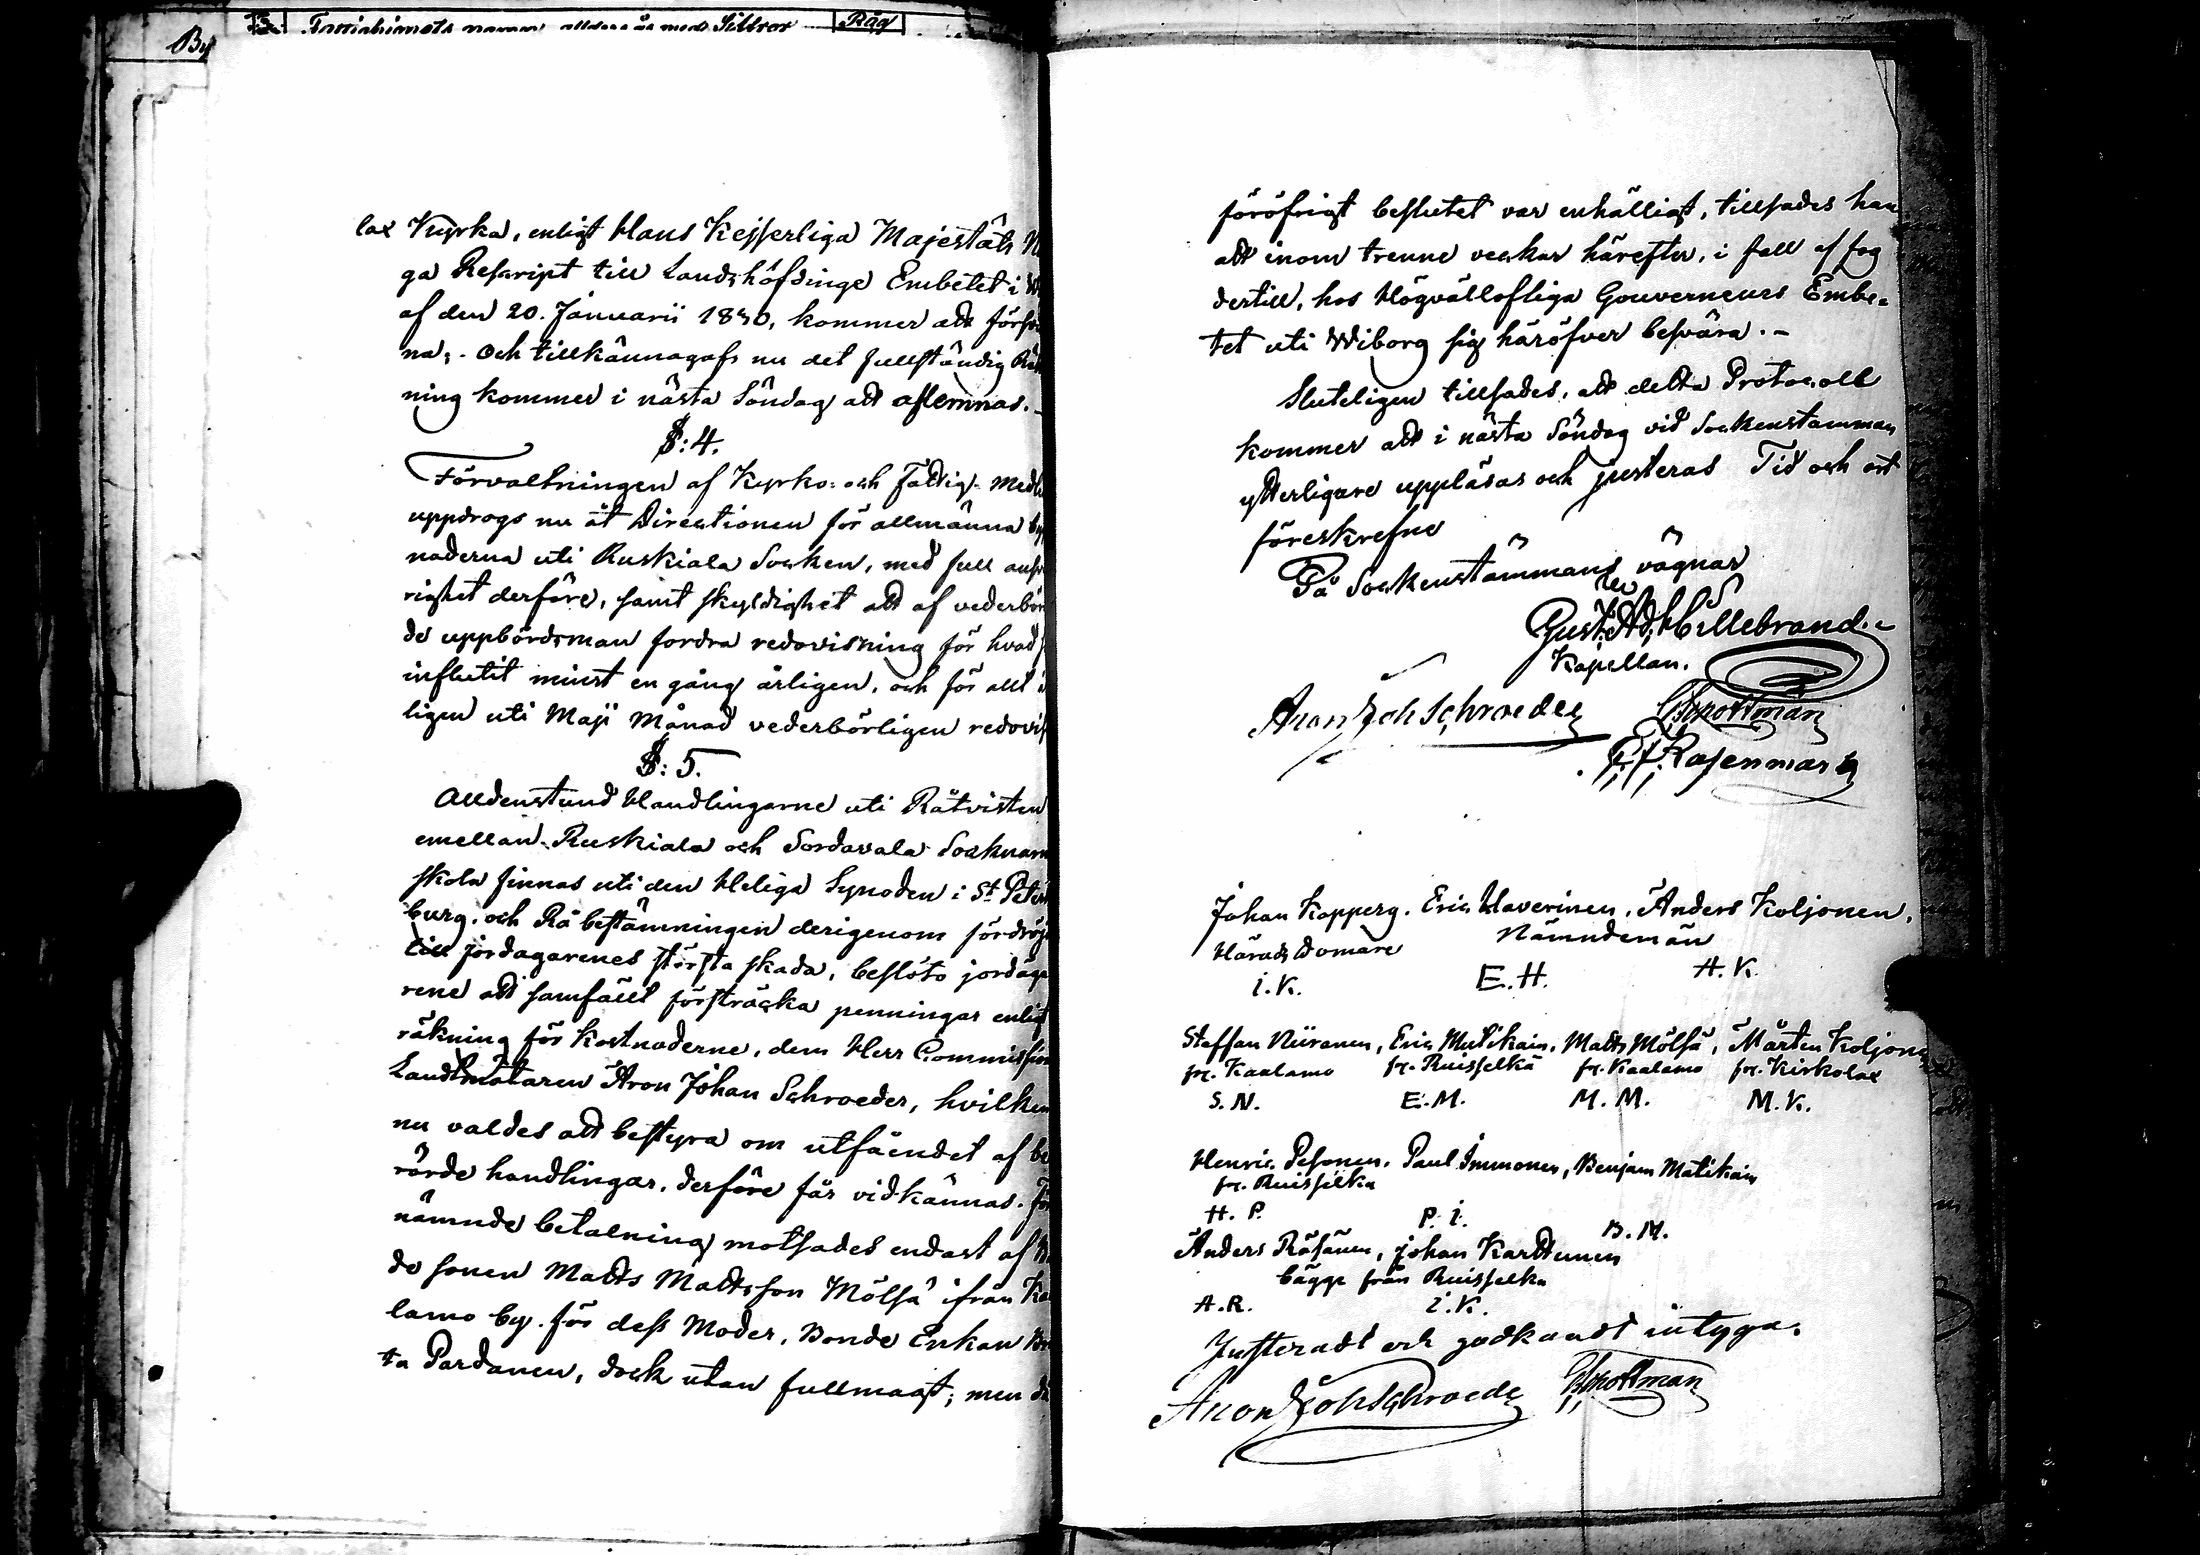 By
namn
Råg
lax Kyrka, enligt Hans Kejserliga Majestäts
ga Rescript till Landshöfdinge Embetet i
af den 20. Januarii 1830, kommer att
na; - Och tillkännagafs nu det fullständig
ning kommer i nästa Söndag att aflemnas. -
§: 4.
Förvaltningen af Kyrko- och Fattig-
uppdrogs nu åt Directionen för allmänna
naderna uti Ruskiala Socken, med full
righet derföre, samt skyldighet att af
de uppbördsman fordra redovisning för hvad
influtit minst en gång årligen, och för allt
ligen uti Maji Månad vederbörligen
§: 5.
Alldenstund Handlingarne uti Råtvisten
emellan Ruskiala och Sordavala
skola finnas uti den Heliga Synoden i St
burg. och Rå bestämningen derigenom
till jordagarenes största skada, beslöto
rene att samfällt försträcka penningar enligt
räkning för kostnaderne, dem Herr
Landtmätaren Aron Johan Schroeder, hvilken
nu valdes att bestyra om utfåendet af
rörde handlingar, derföre får vidkännas.
nämnde betalning motsades endast af
de sonen Matts Mattsson Mölsä ifrån
lamo by. för dess Moder, Bonde Enkan
ta Pardanen, dock utan fullmagt; men
föröfrigt beslutet var enhälligt, tillsades
att inom trenne veckor härefter, i fall af fog
dertill, hos Högvällofliga Gouverneurs Embe-
tet uti Wiborg sig häröfver besvära. -
Sluteligen tillsades, att detta Protocoll
kommer att i nästa Söndag vid Sockenstämman
ytterligare uppläsas och justeras Tid och ort
föreskrefne
På Sockenstämmans vägnar
Gust. Ad. Hillebrand.
Kapellan.
Aron Joh Schroeder
Johan Kopperg. Eric Haverinen, Anders Koljonen,
Härads Domare Nämndemän
I. K. E. H. A. K.
Staffan Niiranen, Eric Mutikain, Matts Mölsä, Mårten
fr. Kaalamo fr. Ruisselkä fr. Kaalamo fr. Kirkolax
S. N. E. M. M. M. M. K.
Henric Pesonen, Paul Immonen, Benjam Matikain
fr. Ruisselkä
H. P. P. I. B. M.
Anders Räsänen, Johan Karttunen
bägge från Ruisselkä
A. R. I. K.
Justeradt och godkandt intyga.
Aron Joh Schroeder